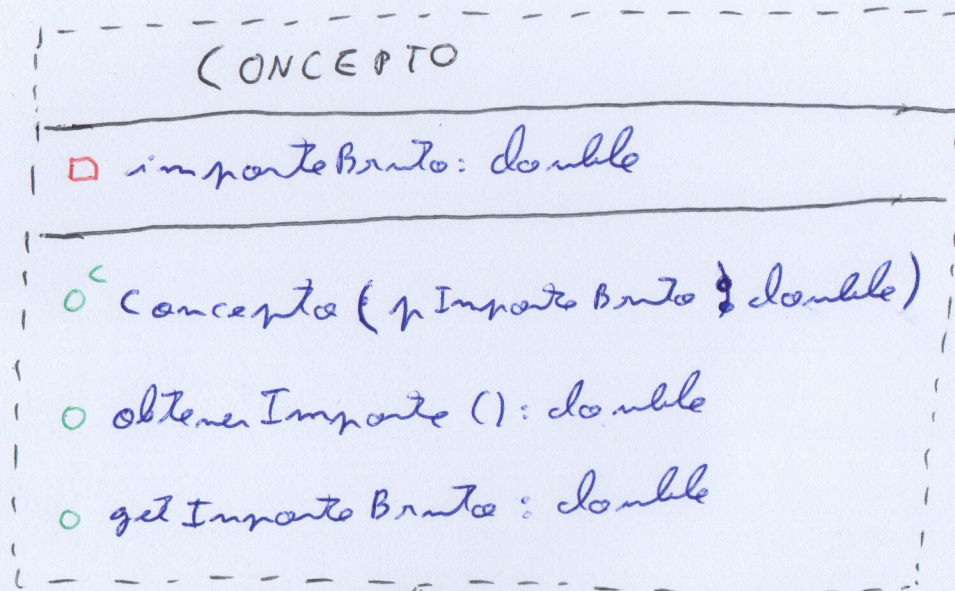 CONCEPTO
importeBruto: double
c Concepto (pImporteBruto : double)
obtenerImporte (): double
getImporteBruto : double